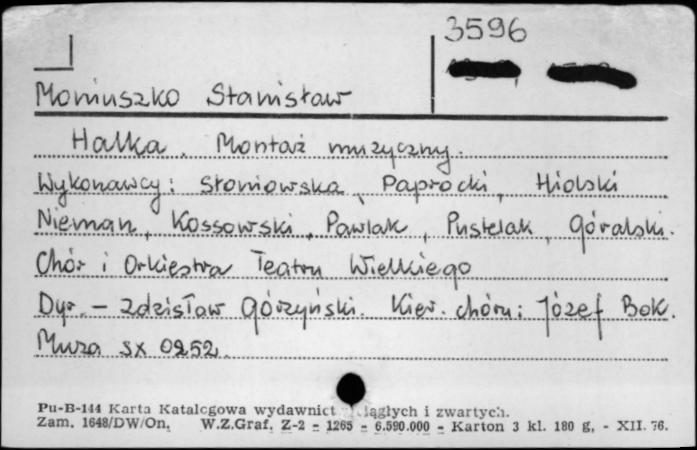 3596
Moniuszko Stanisław
Halka. Montaż muzyczny.
Wykonawcy: Słoniowska, Paprocki, Hiolski
Nieman, Kossowski, Pawlak, Pustelak, Góralski.
Chór i Orkiestra Teatru Wielkiego
Dyr. – Zdzisław Górzyński. Kier. chóru: Józef Bok.
Muza SX 0252
Pu-B-144 Karta Katalogowa wydawnict ciągłych i zwartych.
Zam. 1648/DW/On. W.Z.Graf. Z-2 - 1265 - 6.590.000 - Karton 3 kl. 180 g, - XII. 76.